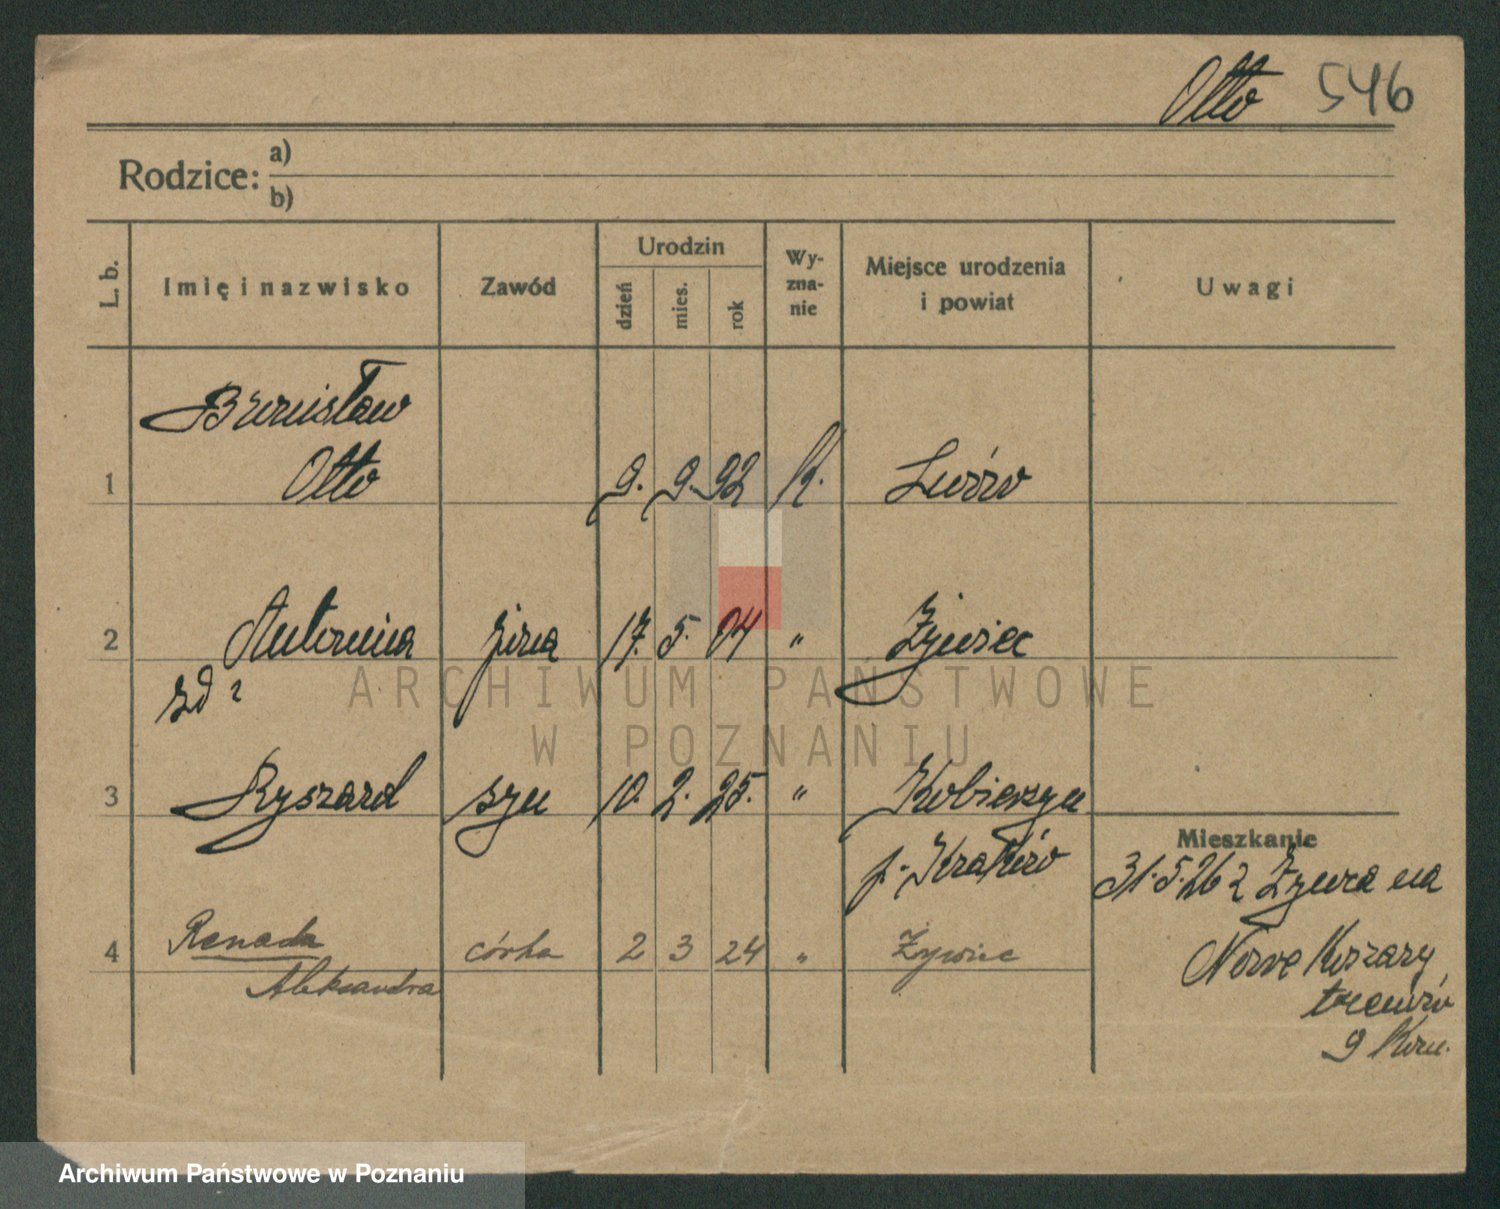 Otto 546
Rodzice: a)
b)
L. b. Imię i nazwisko Zawód Urodzin dzień mies. rok Wy-zna-nie Miejsce urodzenia i powiat Uwagi
Bronisław
1 Otto 9. 9. 92 R. Lwów
2 Antonina żona 17. 5. 04 " Żywiec
zd
ARCHIWUM PAŃSTWOWE
W POZNANIU
3 Ryszard syn 10. 2. 25. " Kobierzyn
Mieszkanie
p. Kraków 31.5.26 z Żywca na
4 Renada córka 2 3 24 " Żywiec Nowe Koszary
Aleksandra
taborów
9
Archiwum Państwowe w Poznaniu